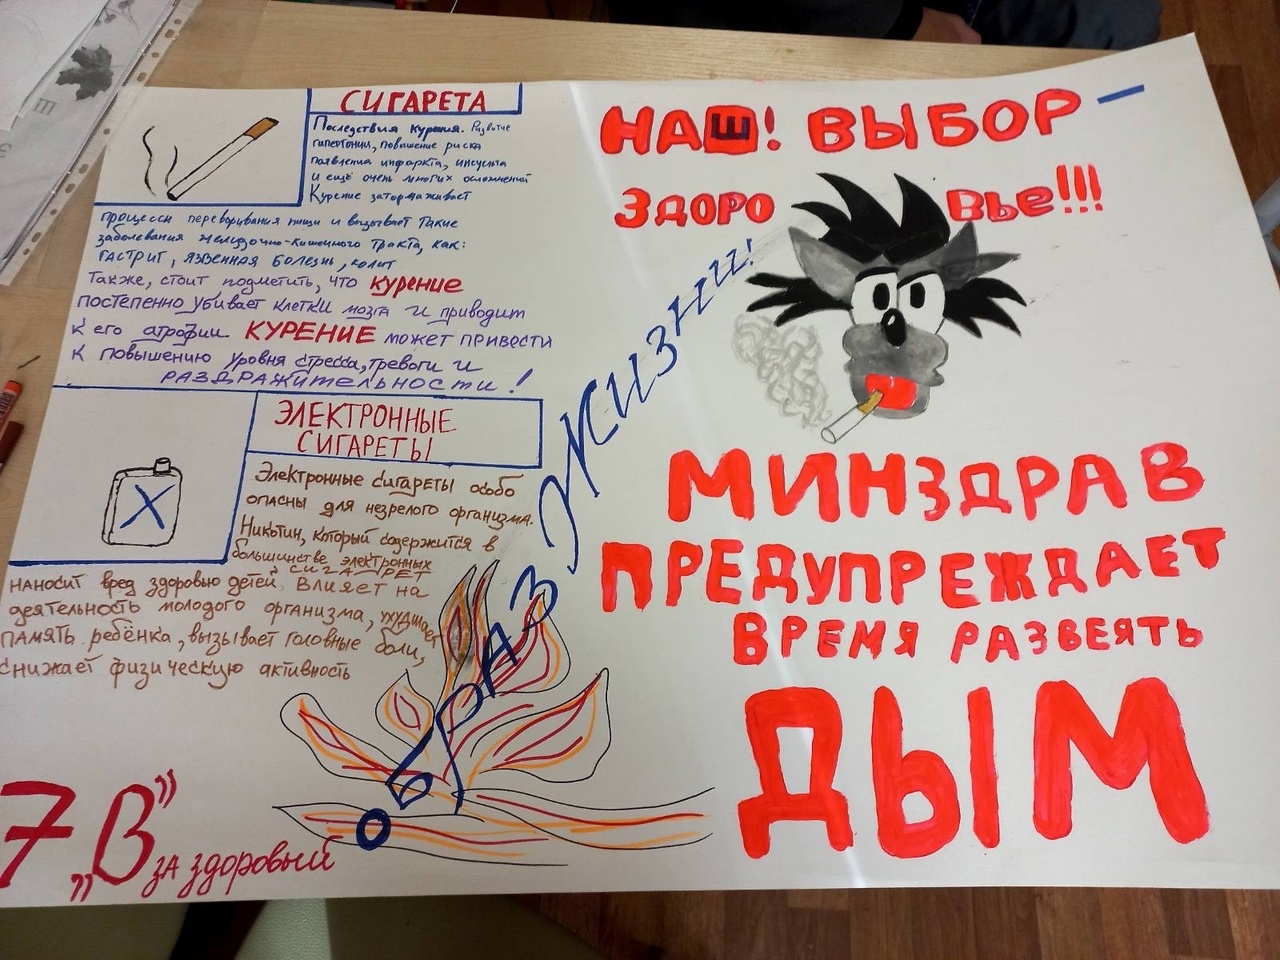 СИГАРЕТА
Последствия курения. Развитие
гипертонии, повышение риска
появления инфаркта, инсульта
и ещё очень многих осложнений
Курение затормаживает
процессы переваривания пищи и вызывает такие
заболевания желудочно-кишечного тракта, как:
гастрит, язвенная болезнь, колит
Также, стоит подметить, что курение
постепенно убивает клетки мозга и приводит
к его атрофии КУРЕНИЕ может привести
к повышению уровня стресса, тревоги и
раздражительности!
ЭЛЕКТРОННЫЕ
СИГАРЕТЫ
Электронные сигареты особо
опасны для незрелого организма.
Никотин, который содержится в
большинстве электронных
сигарет
наносит вред здоровью детей. Влияет на
деятельность молодого организма, ухудшает
память ребёнка, вызывает головные боли,
снижает физическую активность
7 „В” за здоровый
ОБРАЗ ЖИЗНИ!
НАШ! ВЫБОР –
ЗДОРО ВЬЕ!!!
МИНЗДРАВ
ПРЕДУПРЕЖДАЕТ
ВРЕМЯ РАЗВЕЯТЬ
ДЫМ